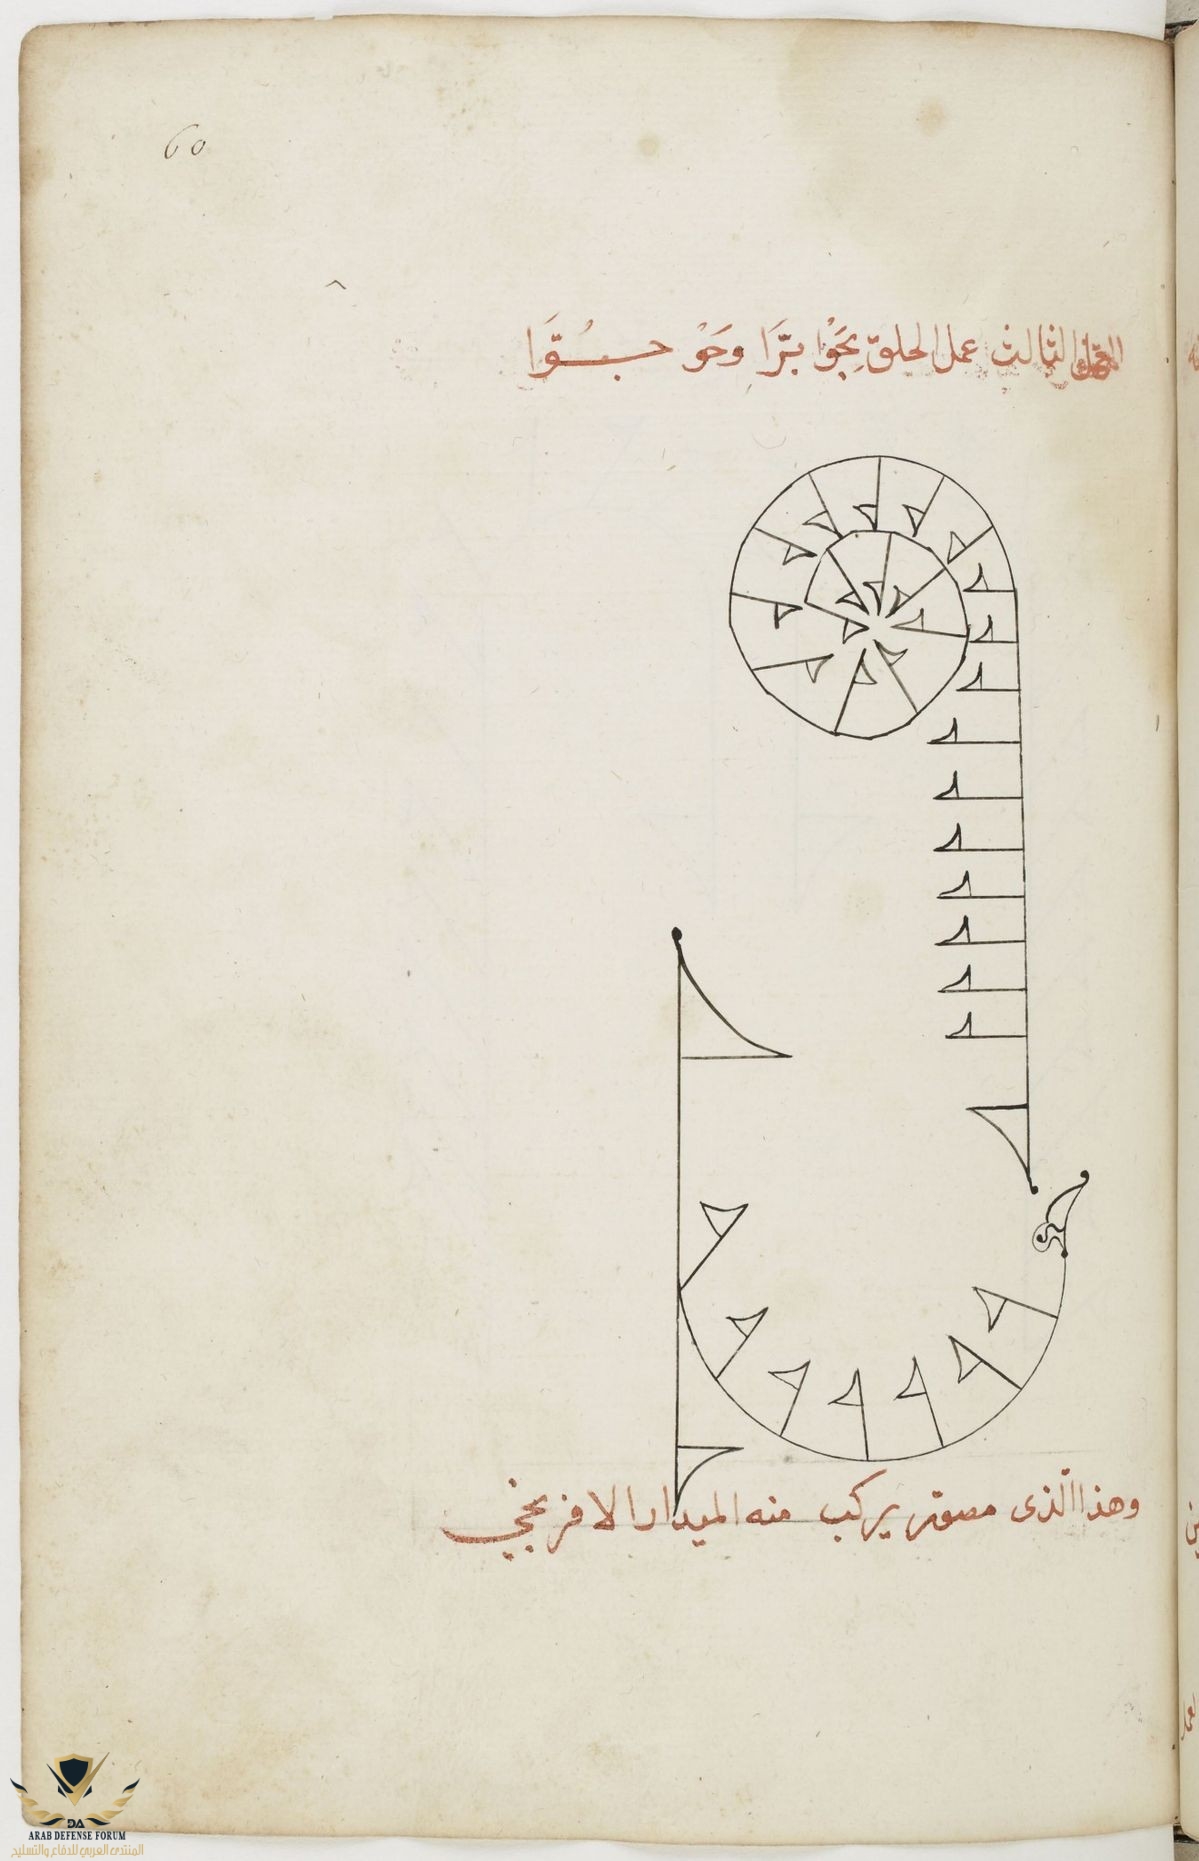 60
الثالث عمل الحلق بَحْوا برَّا وحَوْ
وهذا الّذى مصوّر يركب منه الميدار الافرنجي
ARAB DEFENSE FORUM
المنتدى العربي للدفاع والتسليح